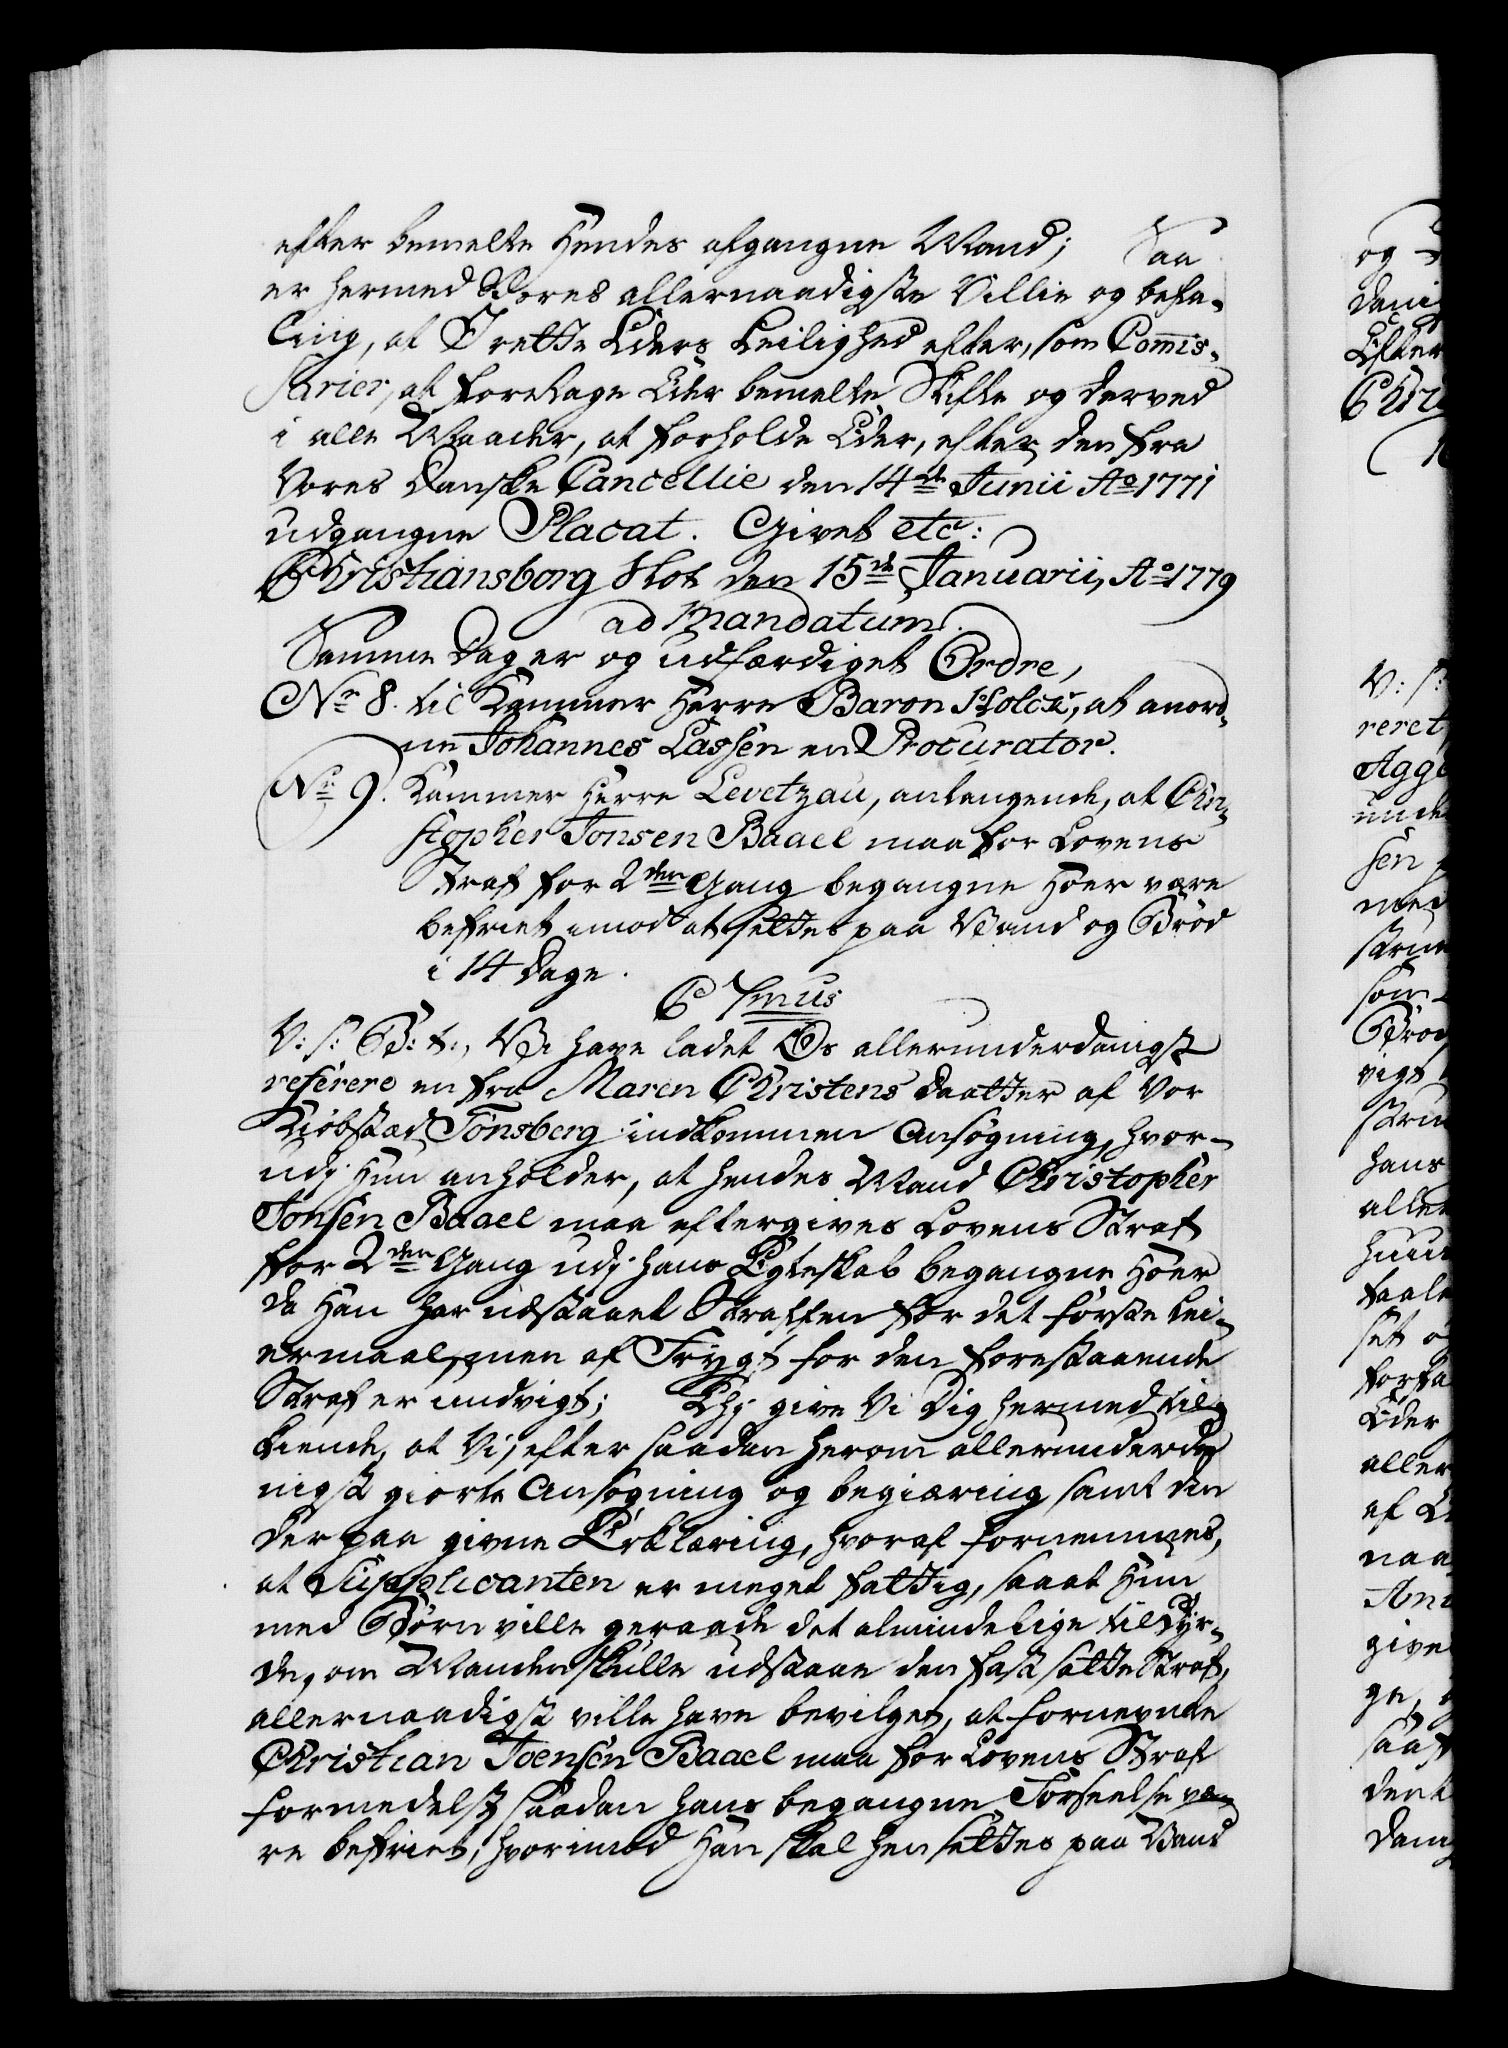 efter bemelte Hendes afgangne Mand; Saa
er hermed Vores allernaadigste Villie og befa-
ling, at I rette Eders Leilighed efter, som Com̅is-
sarier, at foretage Eder bemelte Skifte og derved
i alle Maader, at forholde Eder, efter den fra
Vores Danske Cancellie den 14de Junii Ao 1771
udgangne Placat. Givet etc:
Christiansborg Slot den 15de Januarii, Ao 1779
ad Mandatum.
Samme Dag er og udfærdiget Ordre,
Nr 8. til Kammer Herre Baron Holck, at anord-
ne Johannes Lassen en Procurator.
Nr 9. Kammer Herre Levetzau, anlangende, at Chri-
stopher Jonsen Baael maa for Lovens
Straf for 2den Gang begangne Hoer være
befriet imod at settes paa Vand og Brød
i 14 Dage.
C 7mus
V: s: G: t:, Vi have ladet Os allerunderdanigst
referere en fra Maren Christens Daatter af Vor
Kiøbstæd Tønsberg indkommen Ansøgning, hvor-
udj Hun anholder, at hendes Mand Christopher
Jonsen Baael maa eftergives Lovens Straf
for 2den Gang udj hans Egteskab begangne Hoer
da Han har udstaaet Straffen for det første Lei-
ermaal, men af Frygt for den forestaaende
Straf er undvigt; Thj give Vi Dig hermed til-
kiende, at Vi, efter saadan herom allerunderda-
nigst giorte Ansøgning og begiæring samt den
derpaa givne Erklæring, hvoraf fornemmes,
at Supplicanten er meget fattig, saa at Hun
med Børn ville geraade det almindelige til Byr-
de, om Manden skulle udstaae den fastsatte Straf,
allernaadigst ville have bevilget, at fornevnte
Christian Joensen Baael maa for Lovens Straf
formedelst saadan hans begangne Forseelse væ-
re befriet, hvorimod Han skal hensettes paa Vand